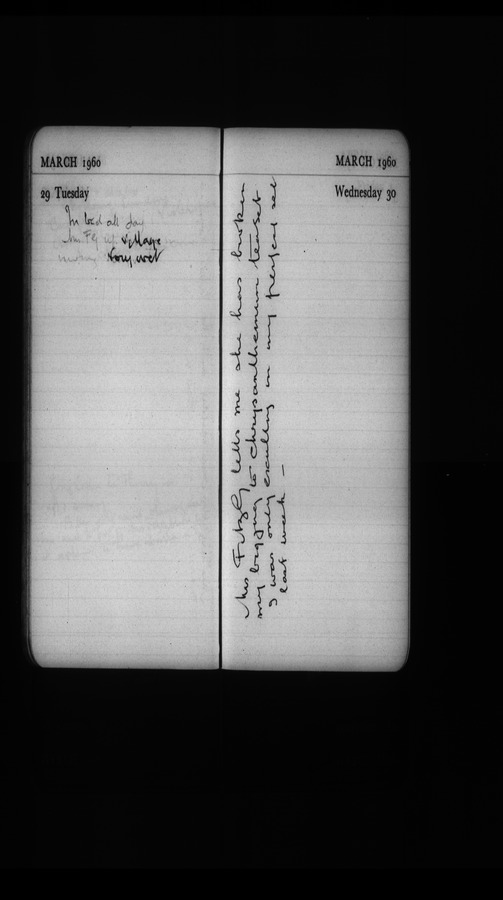 MARCH 1960
29 Tuesday
In bed all day
Mrs FG village
very wet
MARCH 1960
Wednesday 30
Mrs Fitz G tells me she has broken
my big jug to chrysanthemum teaset
I was only exulting in my perfect set
last week –